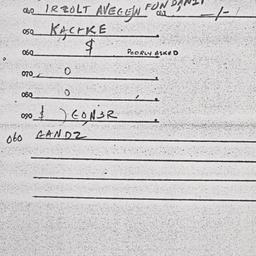 040 IRZOLT AVEGEN FUN DANZI
050 KACHKE
060 $ POORLY ASKED
070 0
080 0
090 $ ) GONZR
060 GANDZ